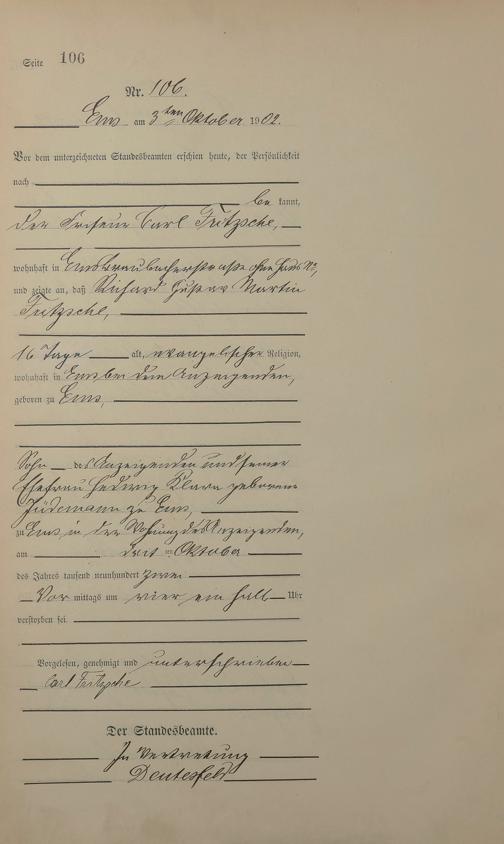 Seite 106
Nr. 106.
Ems am 3ten Oktober 1902.
Vor dem unterzeichneten Standesbeamten erschien heute, der Persönlichkeit
nach
be kannt,
der Friseur Carl Fritzsche,
wohnhaft in Ems ohne Haus No,
und zeigte an, daß Richard Gustav Martin
Fritzsche,
16 Tage alt, evangelischer Religion,
wohnhaft in Ems bei dem Anzeigenden,
geboren zu Ems,
Sohn des Anzeigenden und seiner
Ehefrau Hedwig Klara geborene
zu Ems,
zu Ems, in der Wohnung des Anzeigenden,
am drit en Oktober
des Jahres tausend neunhundert zwei
Vor mittags um vier ein halb Uhr
verstorben sei.
Vorgelesen, genehmigt und unterschrieben
Carl Fritzsche
Der Standesbeamte.
In Vertretung